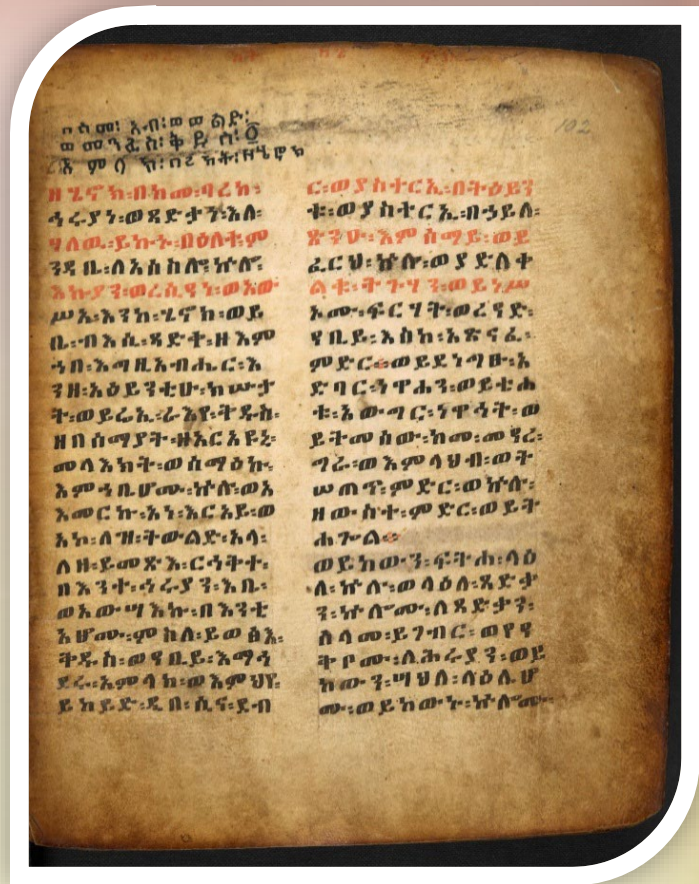 በስመ፡ አብ፡ ወወልድ፡
ወመንፈስ፡ ቅዱስ፡ ፩
አምላክ፡
ዘሄኖክ፡በከመ፡ባረከ፡
ኅሩያነ፡ወጻድቃነ፡እለ፡
ሃለዉ፡ይኩኑ፡በዕለተ፡ም
ንዳቤ፡ለአሰስሎ፡ኵሎ፡
እኩያን፡ወረሲዓን፡ወአው
ሥአ፡እንከ፡ሄኖክ፡ወይ
ቤ፡ብእሲ፡ጻድቅ፡ዘእም
ኀበ፡እግዚአብሔር፡እ
ንዘ፡አዕይንቲሁ፡ክሡታ
ት፡ወይሬኢ፡ራእየ፡ቅዱሰ፡
ዘበሰማያት፡ዘአርአዩኒ፡
መላእክት፡ወሰማዕኩ፡
እምኀቤሆሙ፡ኵሎ፡ወአ
እመርኩ፡አነ፡እርአይ፡ወ
አኮ፡ለዝ፡ትውልድ፡አላ፡
ለዘ፡ይመጽእ፡ርኅቃት፡
በእንተ፡ኅሩያን፡እቤ፡
ወአውሣእኩ፡በእንቲ
አሆሙ፡ምስለ፡ይወፅእ፡
ቅዱስ፡ወዓቢይ፡እማኅ
ደሩ፡አምላክ፡ወእምህየ፡
ይከይድ፡ዲበ፡ሲና፡ደብ
ር፡ወያስተርኢ፡በትዕይን
ቱ፡ወያስተርኢ፡በኃይለ፡
ጽንዑ፡እምሰማይ፡ወይ
ፈርህ፡ኵሉ፡ወያድለቀ
ልቁ፡ትጉሃን፡ወይነሥ
ኦሙ፡ፍርሃት፡ወረዓድ፡
ዓቢይ፡እስከ፡አጽናፈ፡
ምድር፡ወይደነግፁ፡አ
ድባር፡ነዋኃን፡ወይቴሐ
ቱ፡አውግር፡ነዋኃት፡ወ
ይትመሰው፡ከመ፡መዓረ፡
ግራ፡ወእምላህብ፡ወት
ሠጠጥ፡ምድር፡ወኵሉ፡
ዘውስተ፡ምድር፡ወይት
ሐጐል።
ወይከውን፡ፍትሐ፡ላዕ
ለ፡ኵሉ፡ወላዕለ፡ጻድቃ
ን፡ኵሎሙ፡ለጻድቃን፡
ሰላመ፡ይገብር፡ወየዓ
ቅቦሙ፡ለኅሩያን፡ወይ
ከውን፡ሣህለ፡ላዕሌሆ
ሙ፡ወይከውኑ፡ኵሎሙ፡